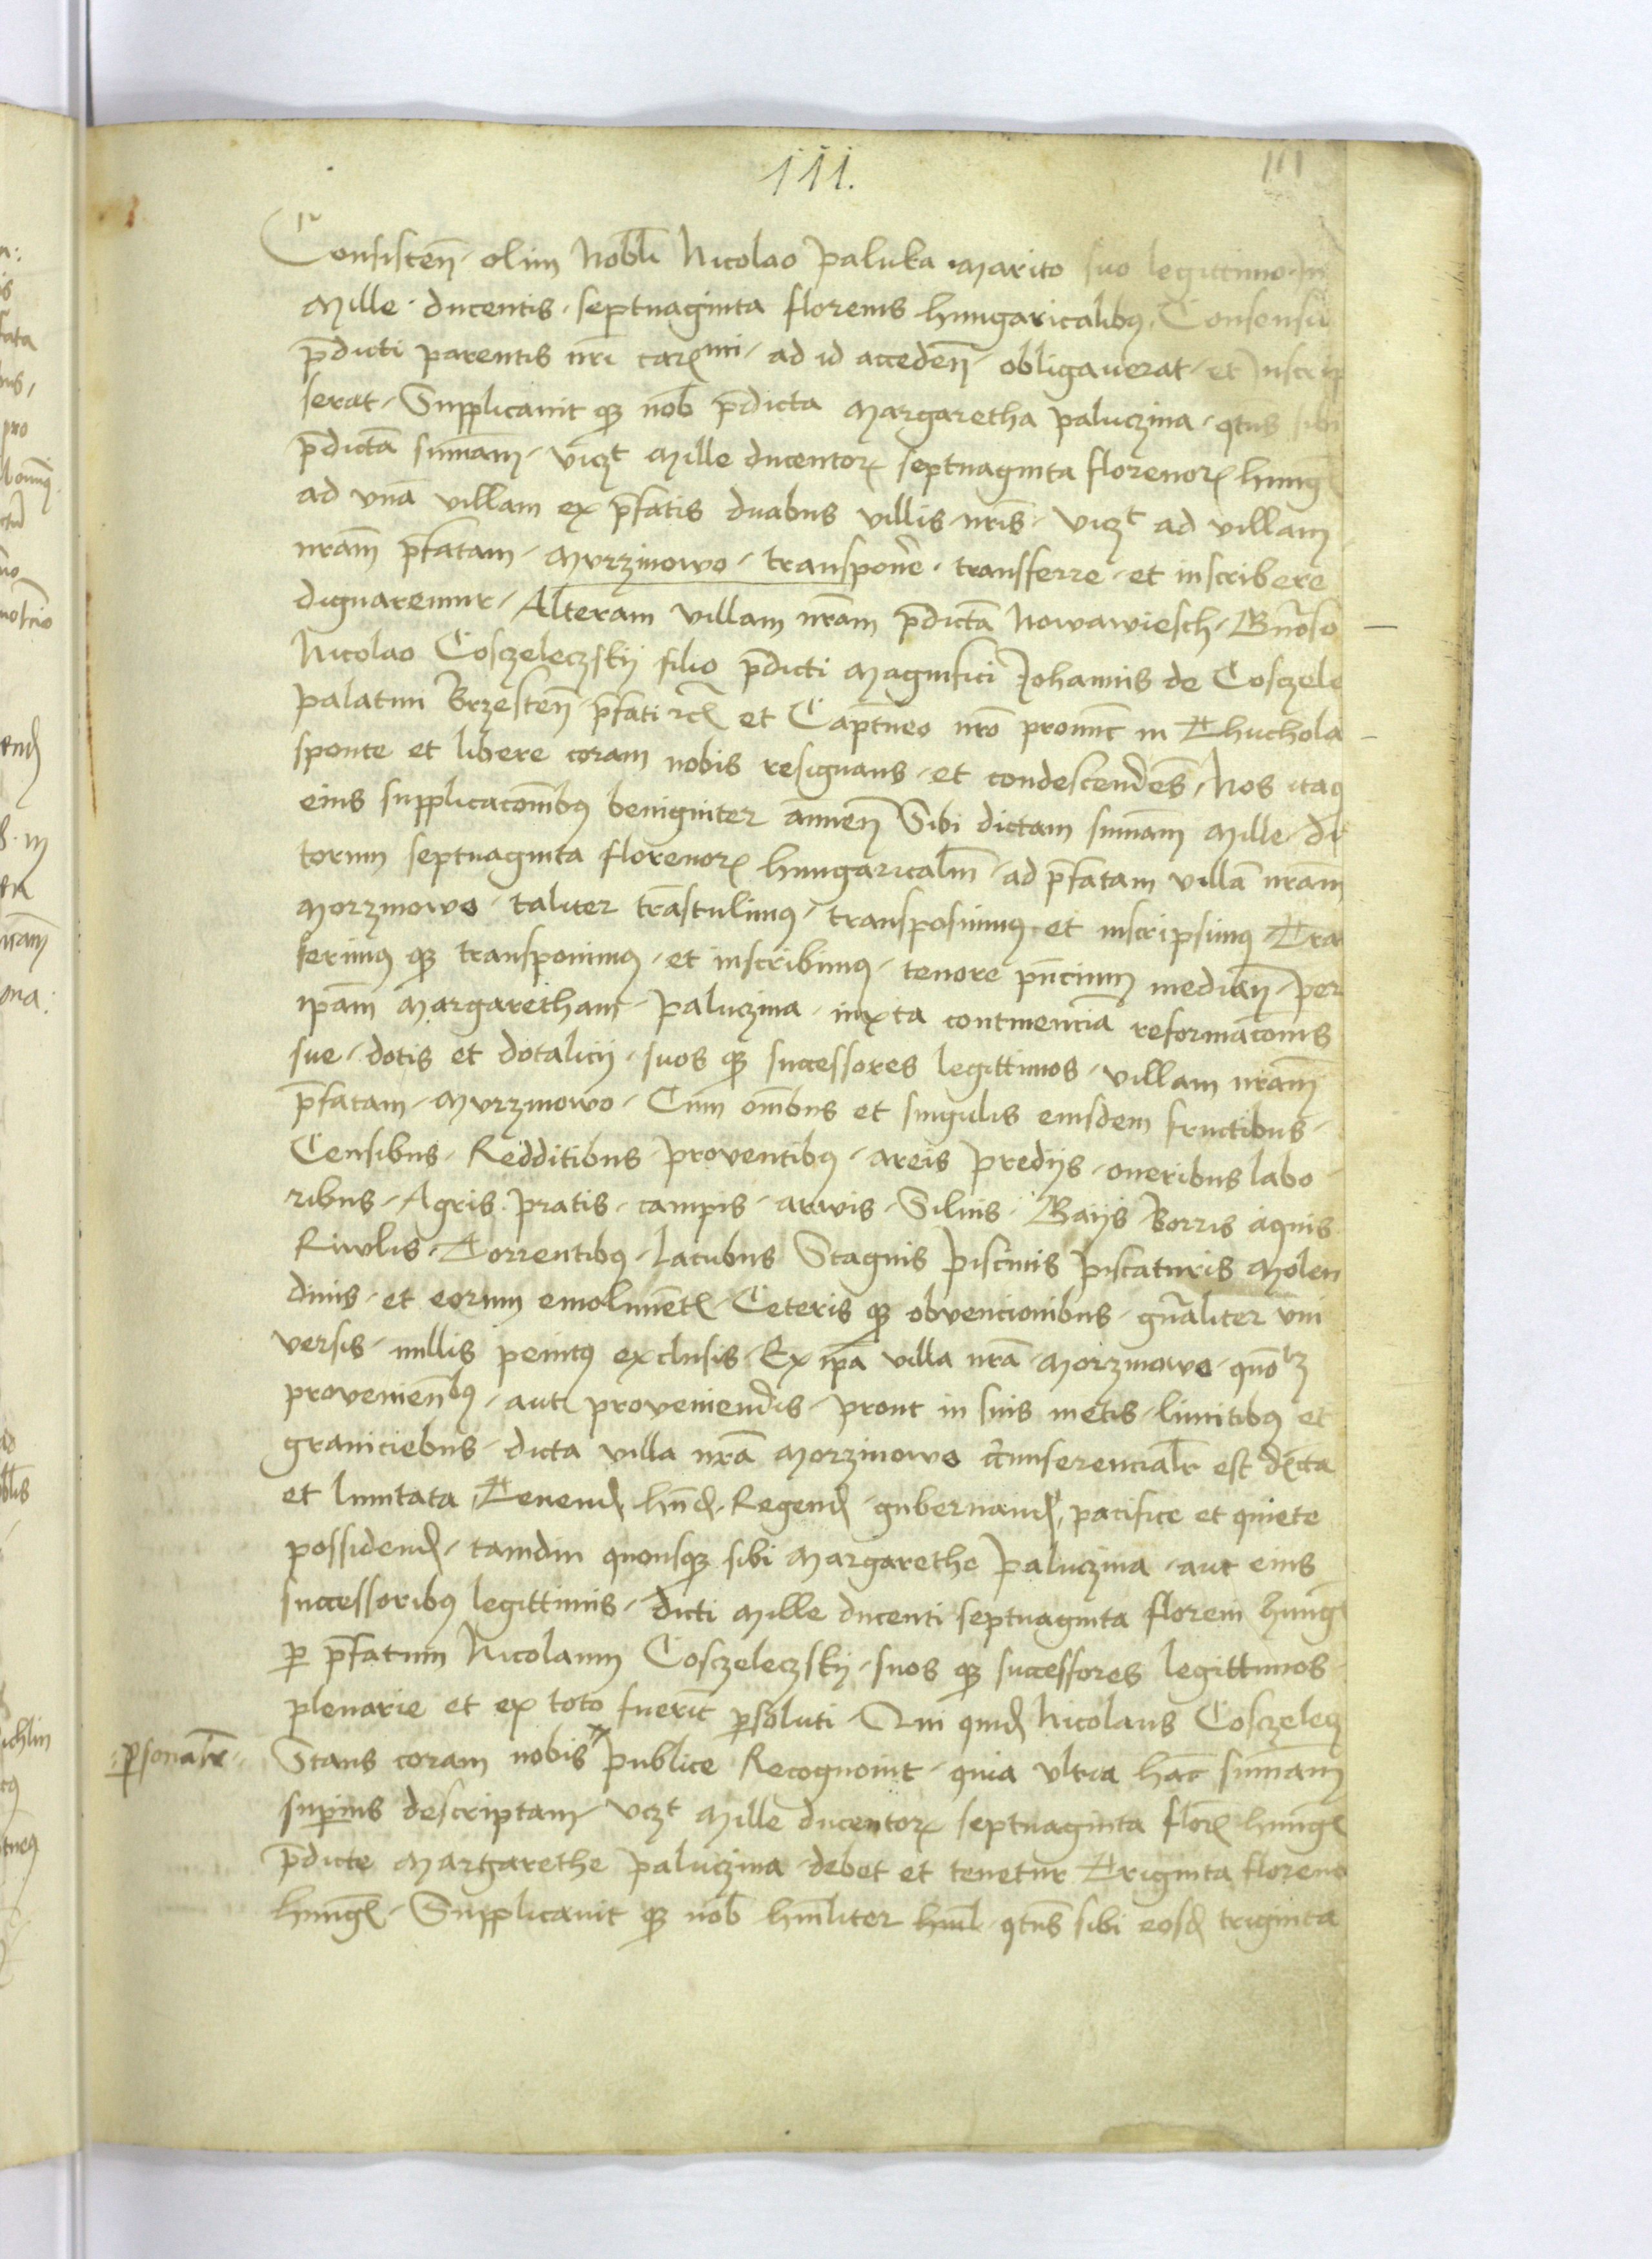 111.
111
Consisteñ olim Nobłi Nicolao Paluka Marito suo legittimo In
Mille ducentis septuaginta florenis hungaricalibꝰ Consensu
p̄dicti parentis nr̄i carꝭmi ad id accedeñ obligauerat et Inscrip
serat Supplicauit qꝫ nob̄ p̄dicta Margaretha paluczina qtꝰ sibi
p̄dictā sum̄am vicꝫt Mille ducentoꝝ septuaginta florenoꝝ hungꝭ
ad vnā villam ex p̄fatis duabus villis nr̄is vicꝫt ad villam
nr̄am p̄fatam Mvrzinowo transpon̄e transferre et inscribere
dignaremur Alteram villam nr̄am p̄dictā Nowawiesch Gn̄oso
Nicolao Cosczeleczskij filio p̄dicti Magnifici Johannis de Cosczele
palatini Brzesteñ p̄fati rcꝭ et Capt̄neo nr̄o pronunc in Thuchola
sponte et libere coram nobis resignans et condescendēs Nos itaqꝫ
eius supplicacōnibꝰ benigniter annueñ Sibi dictam sum̄am Mille du
torum septuaginta florenoꝝ hungaricaliū ad p̄fatam villā nr̄am
Morzinowo taliter trāstulimꝰ transposuimꝰ et inscripsimꝰ Tra
ferimꝰ qꝫ transponimꝰ et inscribimꝰ tenore pn̄cium mediañ per
ip̄am Margaretham paluczina iuxta continenciā reformacōnis
sue dotis et dotalicij suos qꝫ successores legittimos villam nr̄am
p̄fatam Mvrzinowo Cum om̄ibus et singulis eiusdem fructibus
Censibus Redditibus proventibꝰ areis predijs oneribus labo
ribus Agris pratis campis arvis Siluis Gaijs Borris aquis
Rivvlis Torrentibꝰ lacubus Stagnis piscinis piscaturis Molen
dinis et eorum emolimētꝭ Ceteris qꝫ obvencionibus gn̄aliter vni
versis nullis penitꝰ exclusis Ex ip̄a villa nr̄a Morzinowo quōlꝫ
provenieñbꝰ aut proveniendis prout in suis metis limitibꝰ et
graniciebus dicta villa nr̄a Morzinowo cīrcunferencialr̄ est dīcta
et limitata Tenendꝭ hn̄dꝭ Regendꝭ gubernandꝭ pacifice et quiete
possidendꝭ tamdiu quousqꝫ sibi Margarethe paluczina aut eius
successoribꝰ legittimis dicti Mille ducenti septuaginta floreni hungꝭ
ꝑ p̄fatum Nicolaum Cosczeleczskij suos qꝫ successores legittimos
plenarie et ex toto fuerīt ꝑsoluti Qui quidꝭ Nicolaus Cosczelecꝫ
:ꝑsonalr̄: Stans coram nobis publice Recognouit quia vltra hāc sum̄am
suꝑius descriptam vcꝫt Mille ducentoꝝ septuaginta florꝭ hungꝭ
p̄dicte Margarethe paluczina debet et tenetur Triginta floreno
hungꝭ Supplicauit qꝫ nob̄ humiliter huml qtn̄s sibi eosdꝭ triginta